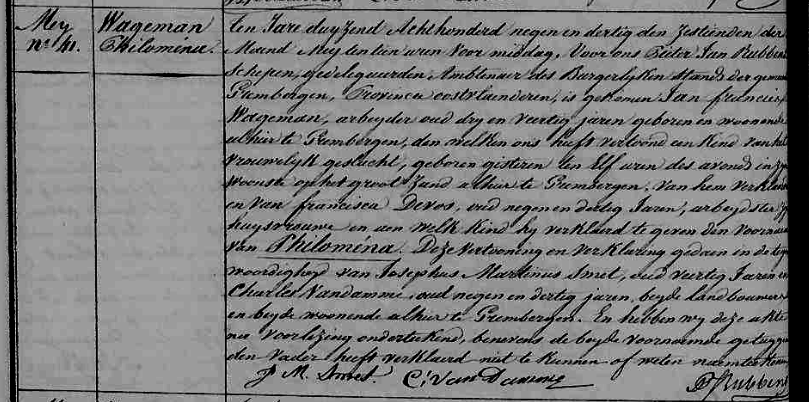 Mey
n° 41.
Wageman
Philomena.
ten Jare duyzend Achthonderd negen en dertig den zestienden der
Maand Mey ten tien uren voor middag, Voor ons Pieter Jan Rubbens
schepen, gedelegueerden Ambtenaer des Burgerlyken stands der gemeente
Grembergen, Provincie oostvlaenderen, is gekomen Jan francies
Wageman, arbeyder oud dry en veertig jaren geboren en woonende
alhier te Grembergen, den welken ons heeft vertoond een kind van het
vrouwelyk geslacht, geboren gisteren ten Elf uren des avonds in zyne
woonste op het groot Zand alhier te Grembergen. Van hem verklaerder
en van francisca Devos, oud negen en dertig Jaren, arbeydster zyne
huysvrouwe en aen welk kind hy verklaerd te geven den voornaem
van Philomena. Deze vertooning en verklaring gedaen in de tegen
woordigheyd van Josephus Martinus Smet, oud veertig Jaren en
Charles Vandamme, oud negen en dertig jaren, beyde landbouwers
en beyde woonende alhier te Grembergen. En hebben wy deze akte
na voorlezing onderteekend, benevens de beyde voornoemde getuygen
den Vader heeft verklaerd niet te kennen of weten naemteekenen
J M. Smet. C. Van Damme PJ Rubbens